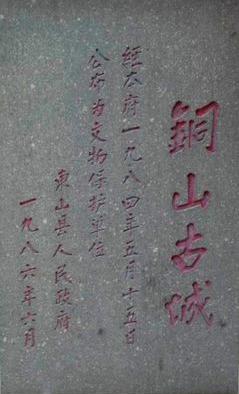 銅山古城
經本府一九八四年五月十五日
公布为文物保护單位
東山县人民政府
一九八六年六月